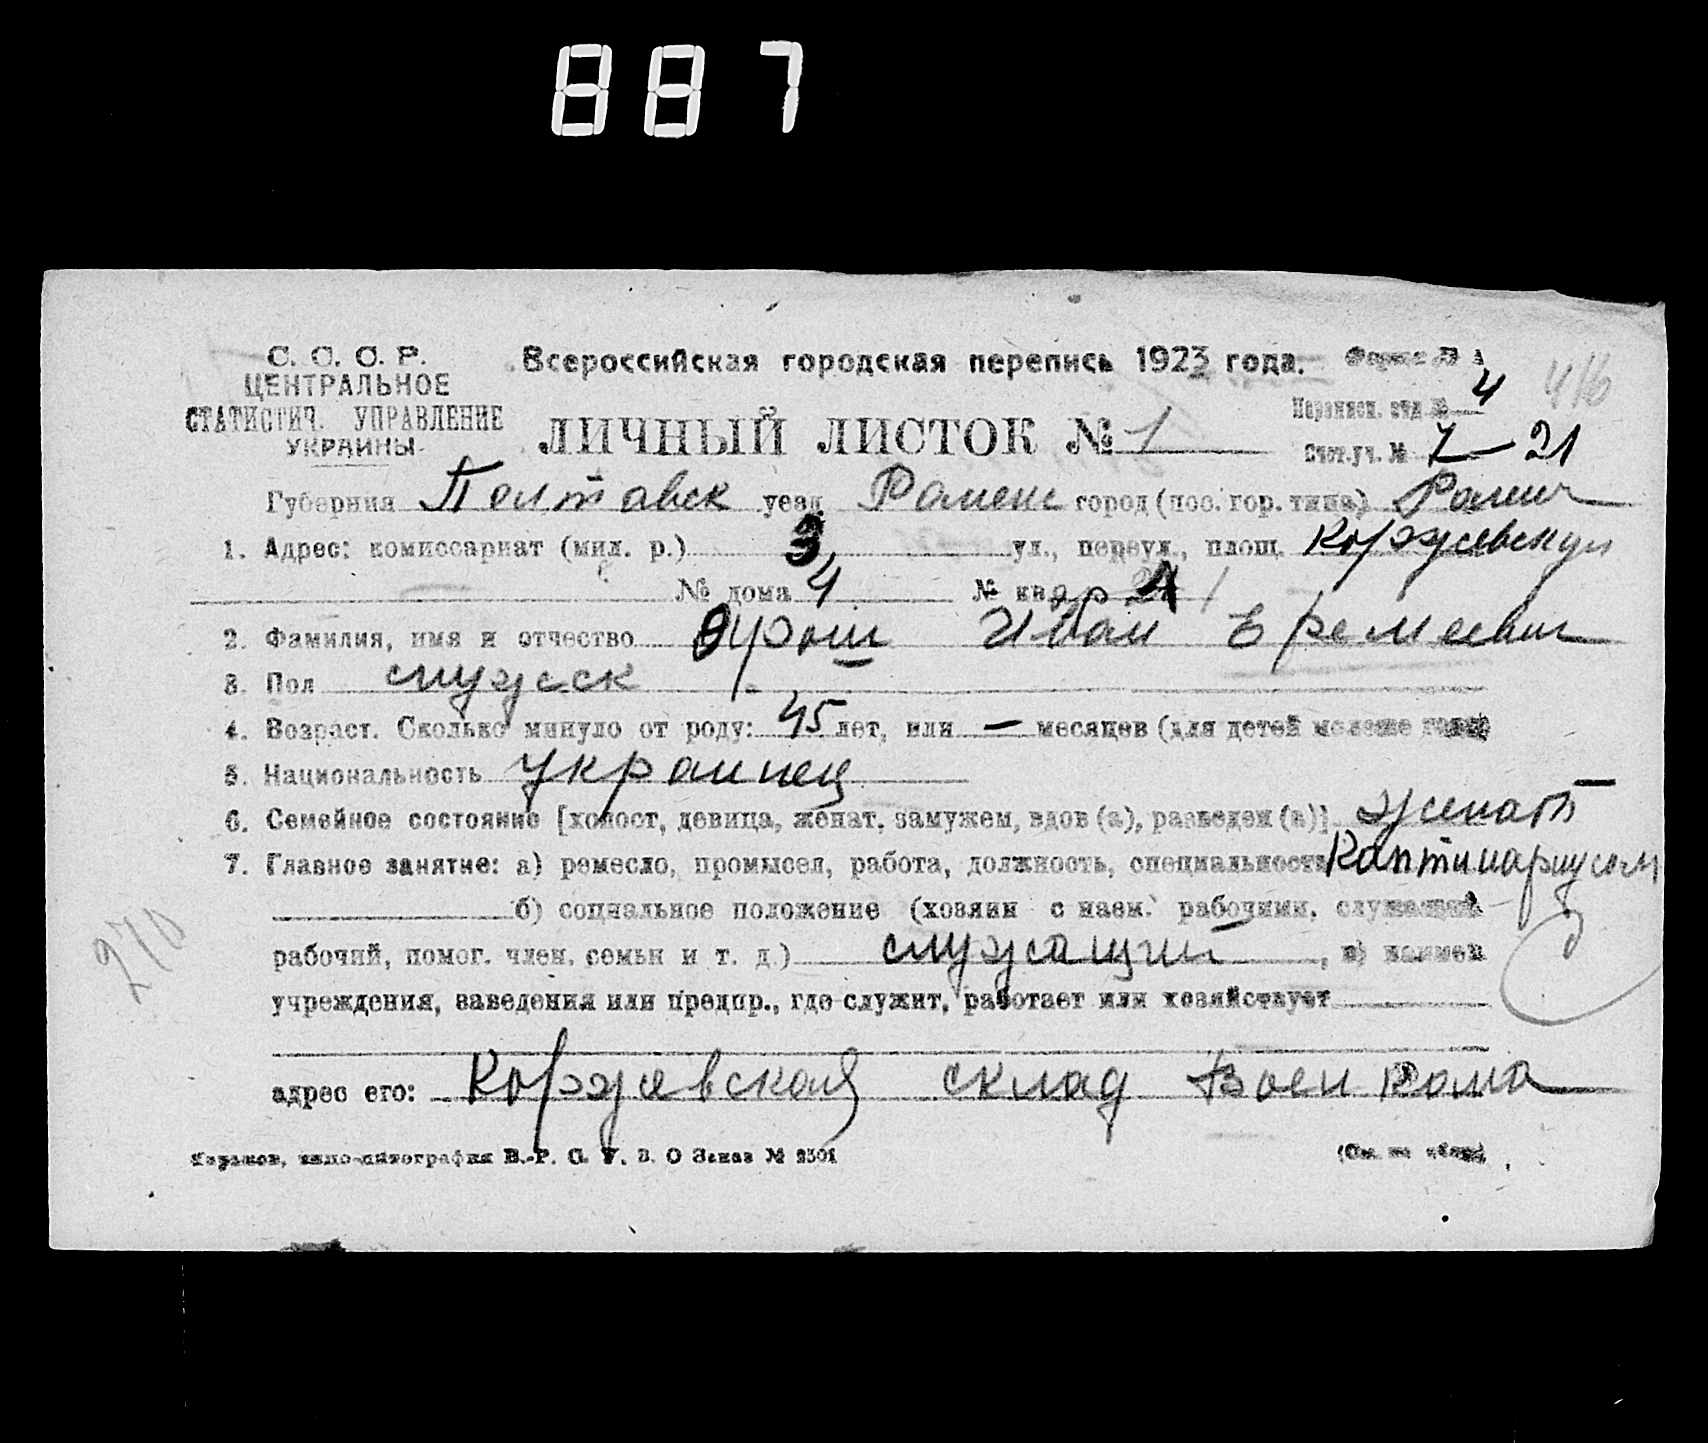 887
С. С. С. Р.
ЦЕНТРАЛЬНОЕ
СТАТИСТИЧ. УПРАВЛЕНИЕ
УКРАИНЫ
Всероссийская городская перепись 1923 года.
Форма А
416
ЛИЧНЫЙ ЛИСТОК № 1
Переписн. отд. № 4
Счет. уч. № 7-21
Губерния Полтавск уезд Роменс город (пос. гор. типа)
1. Адрес: комиссариат (мил. р.) 3, ул., переул., площ. Коржевская
№ дома 4 № ква
2. Фамилия, имя и отчество Иван Еремеевич
3. Пол мужск
4. Возраст. Сколько минуло от роду: 45 лет, или — месяцев (для детей моложе года)
5. Национальность украинец
6. Семейное состояние [холост, девица, женат, замужем, вдов (а), разведен (а)] женат
7. Главное занятие: а) ремесло, промысел, работа, должность, специальность
б) социальное положение (хозяин с наем. рабочими, служащий
270
рабочий, помог. член. семьи и т. д.) служащий, в) наимен
учреждения, заведения или предпр., где служит, работает или хозяйствует
адрес его: Коржевская склад Военкома
Харьков, типо-литография В.-Р. С. У. В. О Заказ № 2301
(См. на обор.)